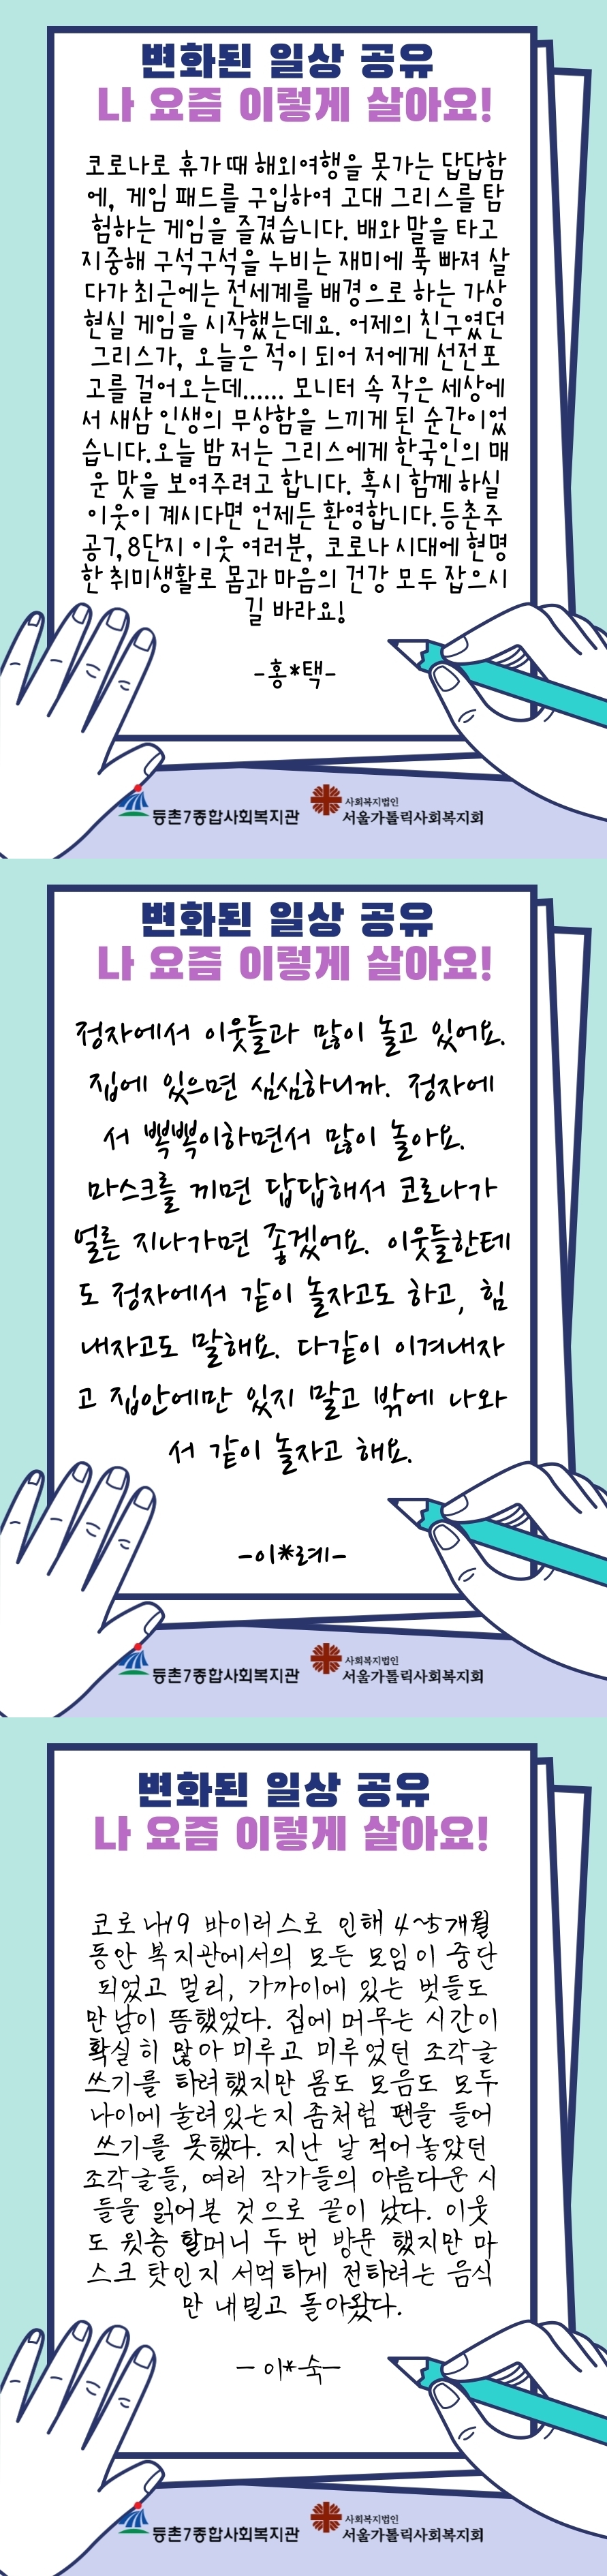 변화된 일상 공유
나 요즘 이렇게 살아요!
코로나로 휴가 때 해외여행을 못가는 답답함
에, 게임 패드를 구입하여 고대 그리스를 탐
험하는 게임을 즐겼습니다. 배와 말을 타고
지중해 구석구석을 누비는 재미에 푹 빠져 살
다가 최근에는 전세계를 배경으로 하는 가상
현실 게임을 시작했는데요. 어제의 친구였던
그리스가, 오늘은 적이 되어 저에게 선전포
고를 걸어오는데...... 모니터 속 작은 세상에
서 새삼 인생의 무상함을 느끼게 된 순간이었
습니다.오늘 밤 저는 그리스에게 한국인의 매
운 맛을 보여주려고 합니다. 혹시 함께 하실
이웃이 계시다면 언제든 환영합니다.등촌주
공7,8단지 이웃 여러분, 코로나 시대에 현명
한 취미생활로 몸과 마음의 건강 모두 잡으시
길 바라요!
-홍*택-
등촌7종합사회복지관
사회복지법인
서울가톨릭사회복지회
변화된 일상 공유
나 요즘 이렇게 살아요!
정자에서 이웃들과 많이 놀고 있어요.
집에 있으면 심심하니까. 정자에
서 뻑뻑이하면서 많이 놀아요.
마스크를 끼면 답답해서 코로나가
얼른 지나가면 좋겠어요. 이웃들한테
도 정자에서 같이 놀자고도 하고, 힘
내자고도 말해요. 다같이 이겨내자
고 집안에만 있지 말고 밖에 나와
서 같이 놀자고 해요.
-이*례-
등촌7종합사회복지관
사회복지법인
서울가톨릭사회복지회
변화된 일상 공유
나 요즘 이렇게 살아요!
코로나19 바이러스로 인해 4~5개월
동안 복지관에서의 모든 모임이 중단
되었고 멀리, 가까이에 있는 벗들도
만남이 뜸했었다. 집에 머무는 시간이
확실히 많아 미루고 미루었던 조각글
쓰기를 하려했지만 몸도 모음도 모두
나이에 눌려있는지 좀처럼 펜을 들어
쓰기를 못했다. 지난 날 적어놓았던
조각글들, 여러 작가들의 아름다운 시
들을 읽어본 것으로 끝이 났다. 이웃
도 윗층 할머니 두 번 방문 했지만 마
스크 탓인지 서먹하게 전하려는 음식
만 내밀고 돌아왔다.
- 이*숙-
등촌7종합사회복지관
사회복지법인
서울가톨릭사회복지회